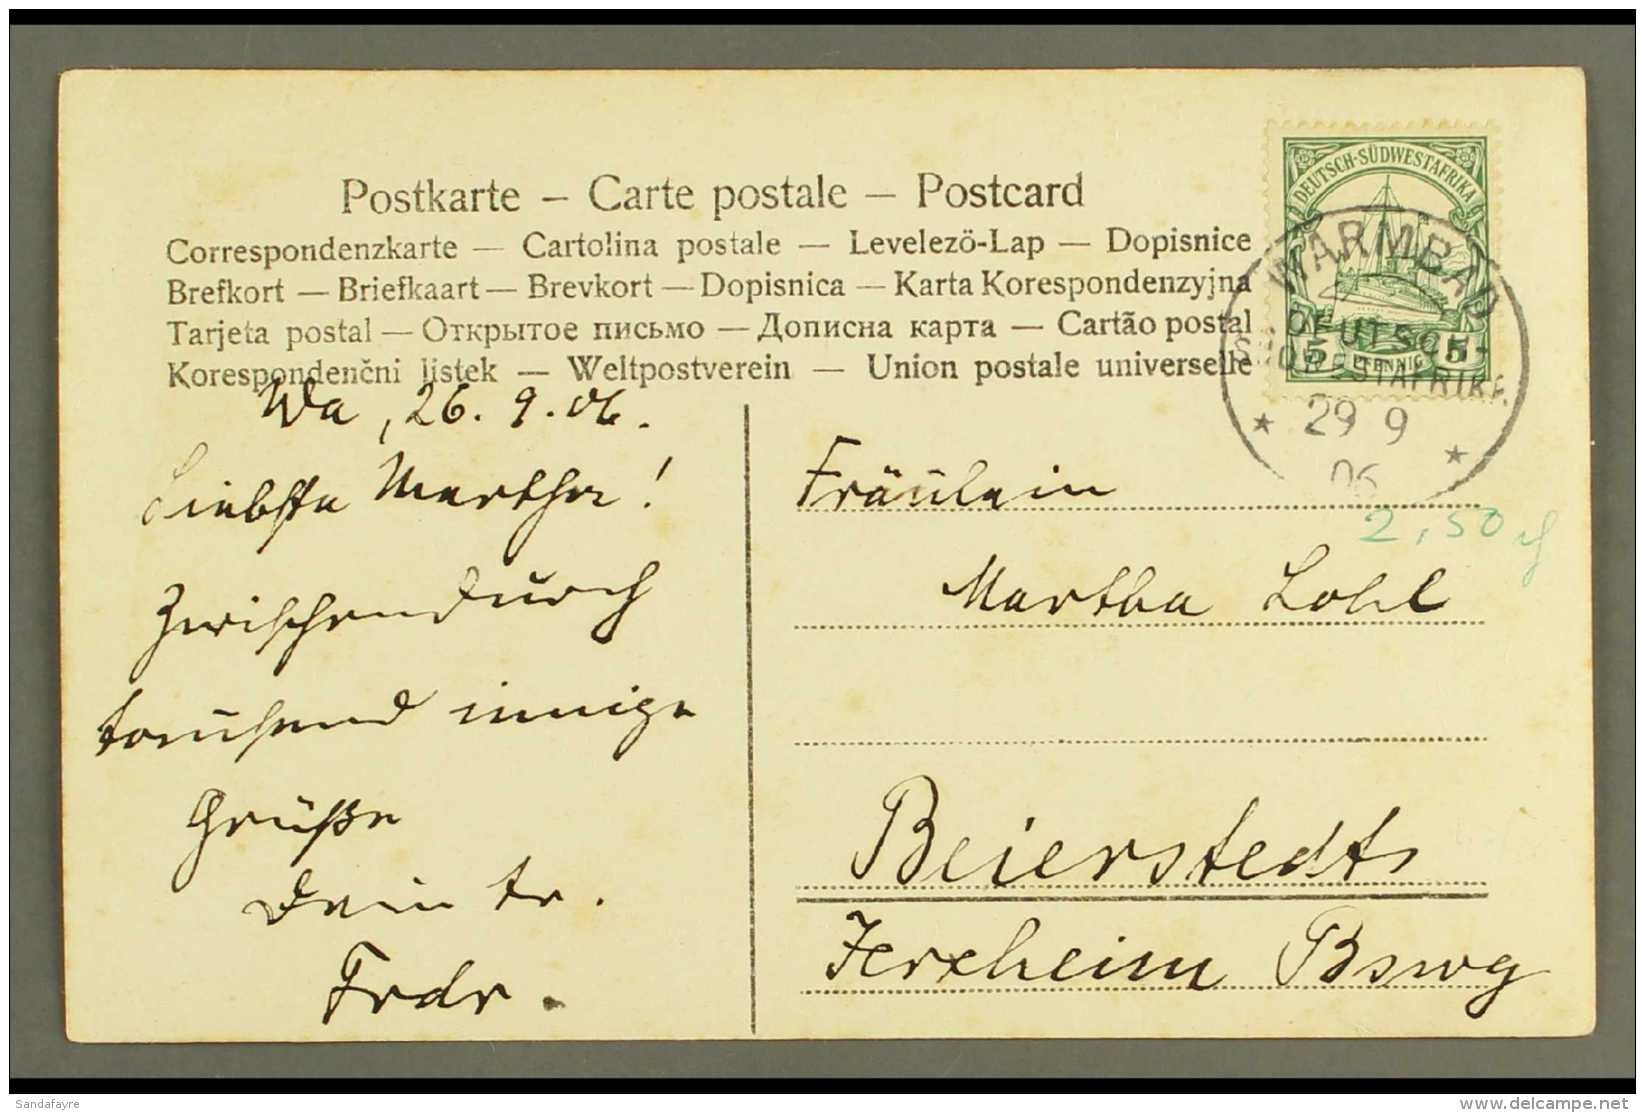 Postkarte – Carte postale – Postcard
Correspondenzkarte — Cartolina postale — Levelezö-Lap — Dopisnice
Brefkort — Briefkaart — Brevkort — Dopisnica — Karta Korespondenzyjna
Tarjeta postal — Открытое письмо — Дописна карта — Cartão postal
Korespondenčni listek — Weltpostverein — Union postale universelle
DEUTSCH-SÜDWESTAFRIKA
5 PFENNIG 5
WARMBAD
DEUTSCH-
SÜDWESTAFRIKA
* 29 9 *
06
2,50
Wa, 26. 9. 06.
Liebste Martha!
Zwischendurch
tausend innige
Grüße
Dein tr.
Frdr.
Fräulein
Martha Lohl
Beierstedt
Jerxheim Bswg
Sandafayre
www.delcampe.net